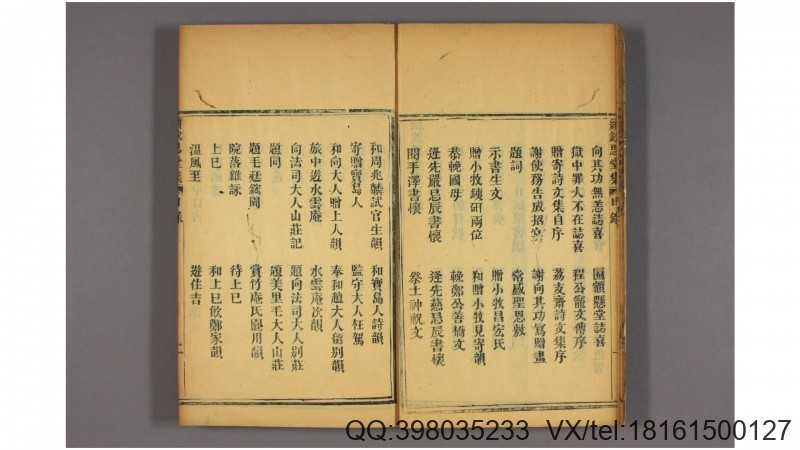 向其功無恙誌喜
匾額懸堂誌喜
獄中罪人不在誌喜
程公寵文傳序
贈寄詩文集自序
荔支齋詩文集序
謝使務告
謝向其功寫贈畫
題詞
常感聖恩敦
示書生文
贈小牧昌宏氏
贈小牧錢研兩位
和贈小牧見寄韻
恭輓國母
輓鄭公善橋文
逢先嚴忌辰書懷
逢先慈忌辰書懷
閱手澤書懷
祭土神祝文
和周兆麟試官生韻
和寶島人詩韻
寄贈寶島人
監守大人枉駕
和向大人贈上人韻
奉和趙大人留別韻
旅中遊水雲庵
水雲庵次韻
向法司大人山莊記
題向法司大人別莊
題同
題美里毛大人山莊
題毛廷鏘周
賞竹庵氏
院落雜詠
待上巳
上巳
和上巳飲鄭家韻
溫風至
遊佳吉
QQ:398035233 VX/tel:18161500127